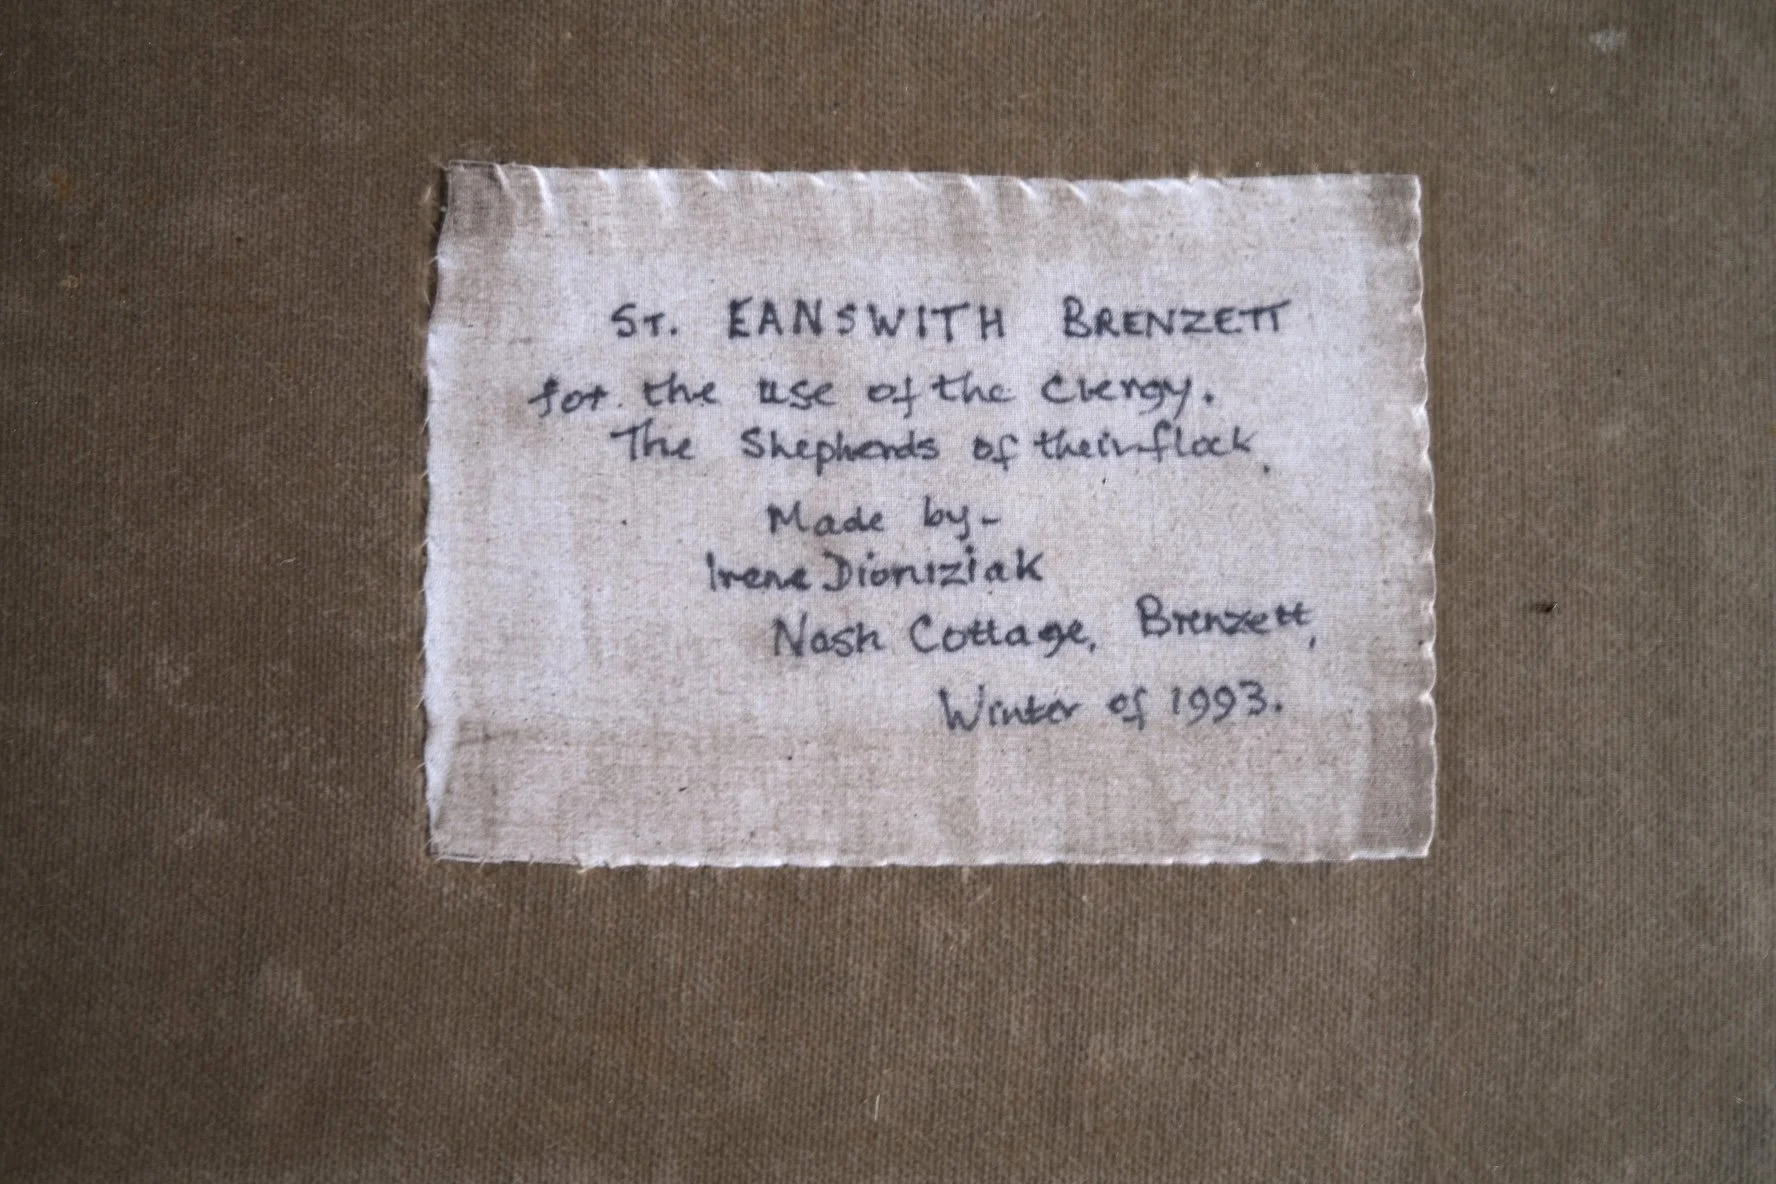 ST. EANSWITH BRENZETT
for the use of the Clergy.
The Shepherds of their flock.
Made by-
Irene Dioniziak
Nash Cottage, Brenzett,
Winter of 1993.